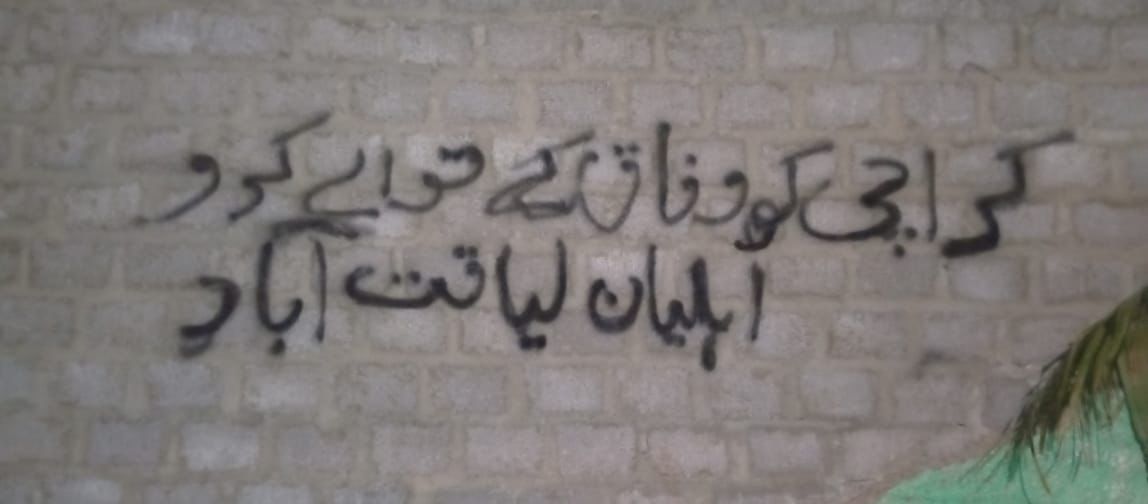 کراچی کو وفاق کے حوالے کرو
اہلیان لیاقت آباد